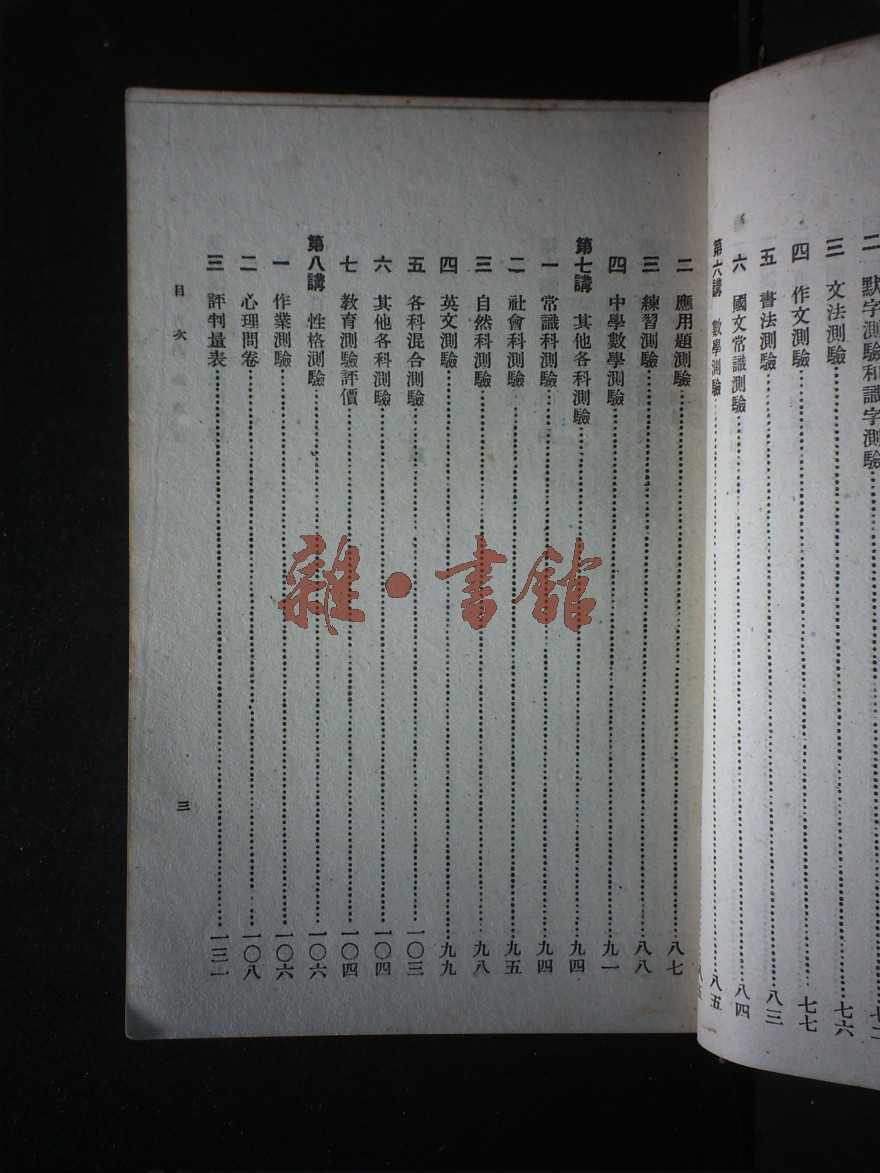 二　默字測驗和識字測驗
三　文法測驗……七六
四　作文測驗……七七
五　書法測驗……八三
六　國文常識測驗……八四
第六講　數學測驗……八五
二　應用題測驗……八七
三　練習測驗……八八
四　中學數學測驗……九一
第七講　其他各科測驗……九四
一　常識科測驗……九四
二　社會科測驗……九五
三　自然科測驗……九八
四　英文測驗……九九
五　各科混合測驗……一〇三
六　其他各科測驗……一〇四
七　教育測驗評價……一〇四
第八講　性格測驗……一〇六
一　作業測驗……一〇六
二　心理問卷……一〇八
三　評判量表……一三一
目次
三
雜·書館